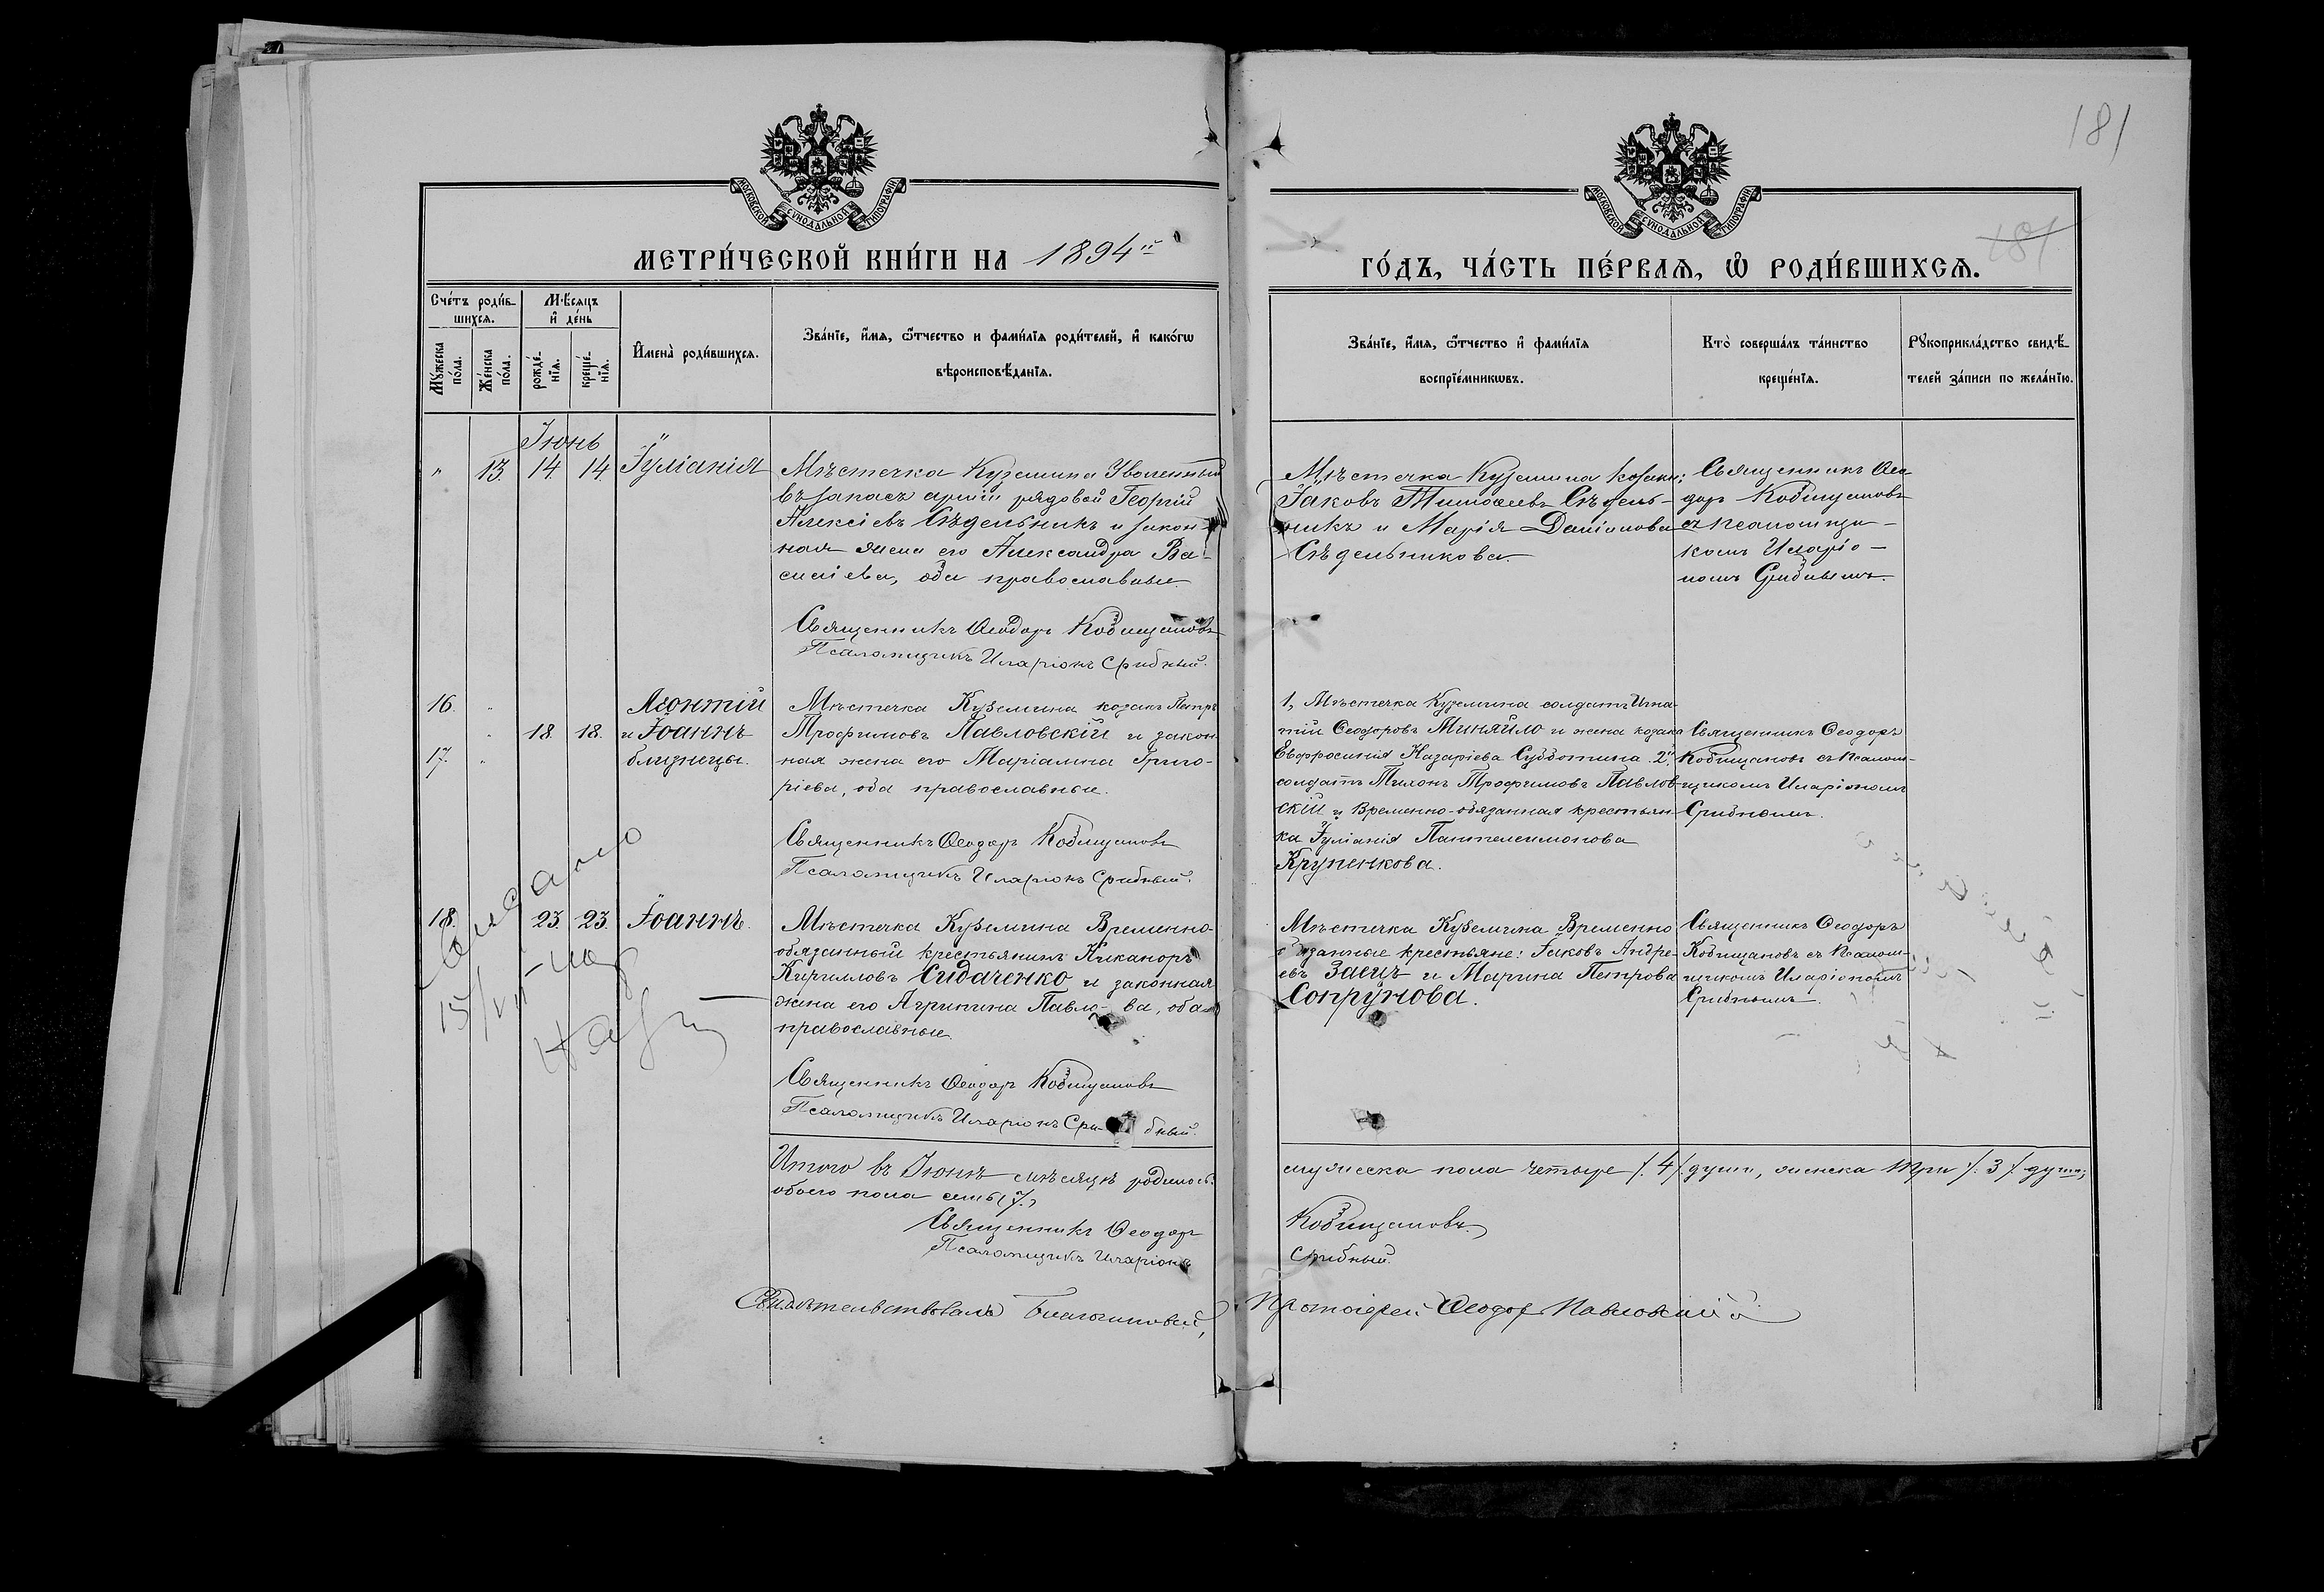 181
181
МОСКОВСКОЙ СѴНОДАЛЬНОЙ ТИПОГРАФІИ
МОСКОВСКОЙ СѴНОДАЛЬНОЙ ТИПОГРАФІИ
МЕТРИ́ЧЕСКОЙ КНИ́ГИ НА 1894й
ГО́ДЪ, ЧА́СТЬ ПЕ́РВАѦ, Ѽ РОДИ́ВШИХСѦ.
Сче́тъ роди́вшихсѧ.
Му́жеска по́ла.
Же́нска по́ла.
Мѣ́сяцъ и҆ де́нь
рожде́нїѧ.
креще́нїѧ.
И҆мена̀ роди́вшихсѧ.
Зва́нїе, и҆́мѧ, ѻ҆́тчество и фами́лїѧ роди́телей, и҆ како́гѡ
вѣроисповѣ́данїѧ.
Зва́нїе, и҆́мѧ, ѻ҆́тчество и҆ фами́лїѧ
воспрїе́мникѡвъ.
Кто̀ соверша́лъ та́инство
креще́нїѧ.
Рꙋкоприкла́дство свидѣ́-
телей за́писи по жела́нїю.
Іюнь
" 13. 14. 14. Іуліанія
Мѣстечка Куземина Уволенный
въ запасъ арміи рядовой Георгій
Алексіевъ Сѣдельникъ и закон-
ная жена его Александра Ва-
силіева, оба православные
Священникъ Ѳеодоръ Кобищановъ
Псаломщикъ Иларіонъ Срибный.
Мѣстечка Куземина козаки:
Іаковъ Тимоѳеевъ Сѣдель-
никъ и Марія Даніилова
Сѣдельникова.
Священникъ Ѳео-
доръ Кобищановъ
съ псаломщи-
комъ Иларіо-
номъ Срибнымъ.
16. "
17. "
18. 18. Леонтій
и Іоаннъ
близнецы.
Мѣстечка Куземина козакъ Петръ
Трофимовъ Павловскій и закон-
ная жена его Маріамна Григо-
ріева, оба православные.
Священникъ Ѳеодоръ Кобищановъ
Псаломщикъ Иларіонъ Срибный.
1, Мѣстечка Куземина солдатъ Игна-
тій Ѳеодоровъ Миняйло и жена козака
Евфросинія Назаріева Субботина. 2,
солдатъ Тихонъ Трофимовъ Павлов-
скій и Временно-обязанная крестьян-
ка Іуліанія Пантелеимонова
Крупенкова.
Священникъ Ѳеодоръ
Кобищановъ съ Псалом-
щикомъ Иларіономъ
Срибнымъ.
18. 23. 23. Іоаннъ.
Мѣстечка Куземина Временно-
обязанный крестьянинъ Никаноръ
Кирилловъ Сидаченко и законная
жена его Агрипина Павло-ва, оба
православные
Священникъ Ѳеодоръ Кобищановъ
Псаломщикъ Иларіонъ Сри-бный.
Мѣстечка Куземина Временно
обязанные крестьяне: Іаковъ Андре-
евъ Заецъ и Марина Петрова
Сопрунова.
Священникъ Ѳеодоръ
Кобищановъ съ Псалом-
щикомъ Иларіономъ
Срибнымъ.
Итого въ Іюнѣ мѣсяцѣ родилось:
обоего пола семь (7),
мужеска пола четыре /.4/. душ, женска три /.3/. душ;
Священникъ Ѳеодоръ Кобищановъ.
Псаломщикъ Иларіонъ Срибный.
Свидѣтельствовалъ Благочинный, Протоіерей Ѳеодоръ Павловскій